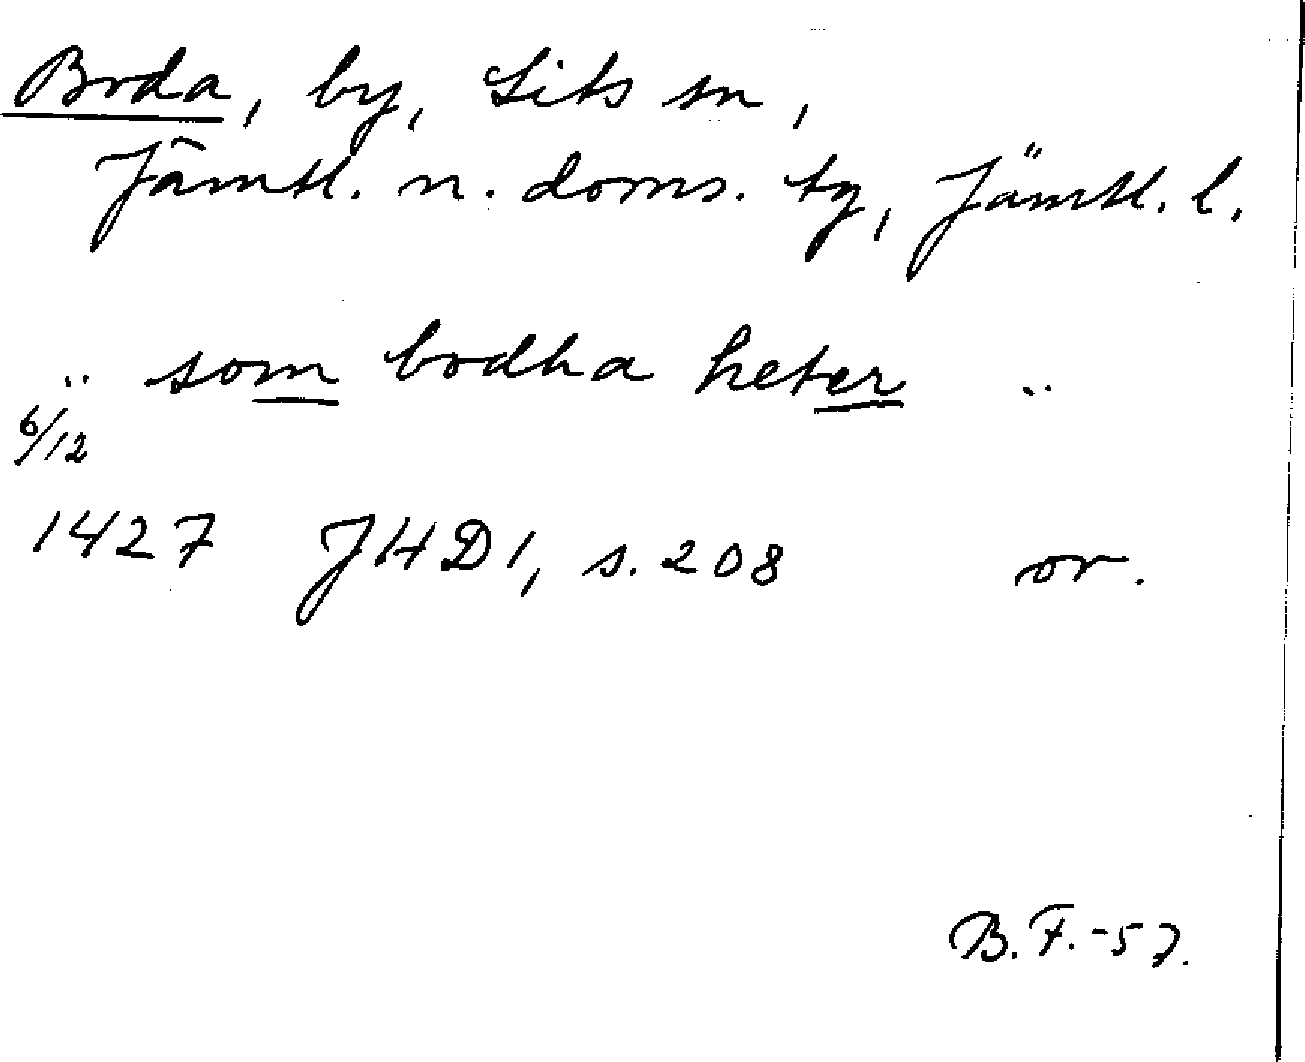 Boda, by, Lits sn,
Jämtl. n. doms. tg, Jämtl. l.
.. som bodha heter ..
6/12
1427 JHD 1, s. 208 or.
B. F. -57.